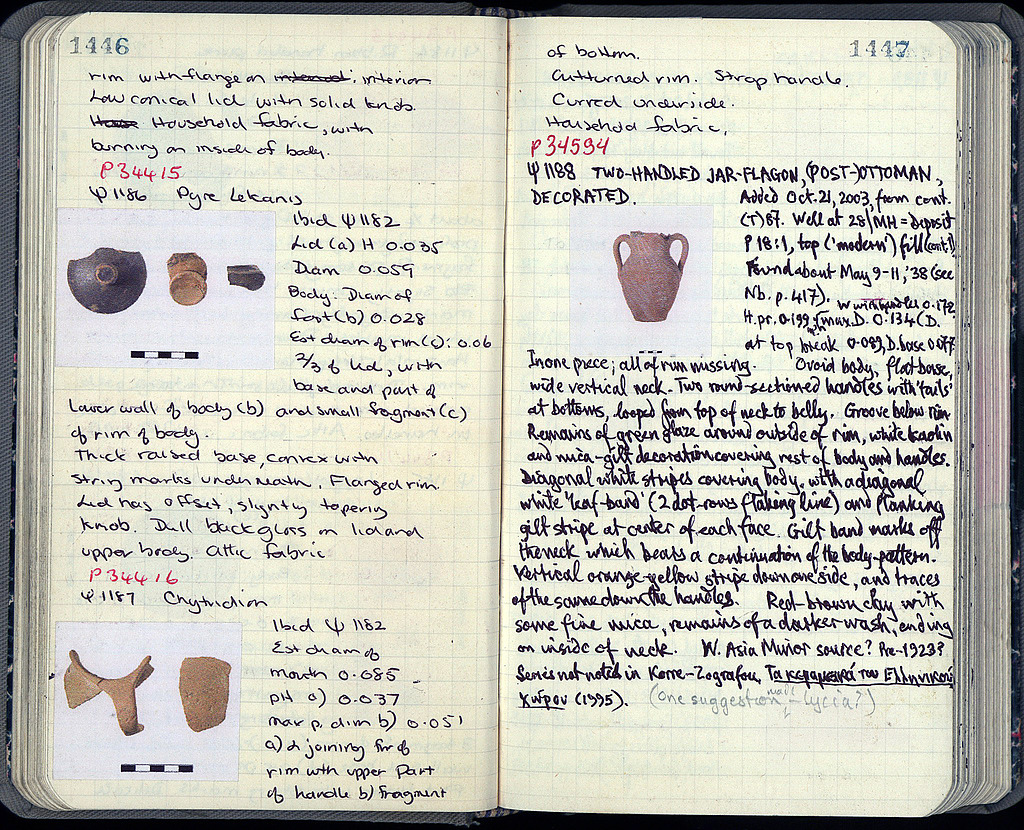 1446
rim with flange on interior, interior
Low conical lid with solid knob.
House Household fabric, with
burning on inside of body.
P 34415
Ψ 1186 Pyre Lekanis
Ibid Ψ 1182
Lid (a) H 0.035
Diam 0.059
Body: Diam of
foot (b) 0.028
Est diam of rim (c): 0.06
2/3 of lid, with
base and part of
lower wall of body (b) and small fragment (c)
of rim of body.
Thick raised base, convex with
string marks underneath. Flanged rim.
Lid has offset, slightly tapering
knob. Dull black gloss on lid and
upper body. Attic fabric
P 34416
Ψ 1187 Chytridion
Ibid Ψ 1182
Est diam of
mouth 0.085
pH a) 0.037
max p. dim b) 0.051
a) 2 joining frr of
rim with upper part
of handle b) fragment
1447
of bottom.
Outturned rim. Strap handle.
Curved underside.
Household fabric.
P 34594
Ψ 1188 TWO-HANDLED JAR-FLAGON, (POST-)OTTOMAN,
DECORATED.
Added Oct. 21, 2003, from cont.
(T) 87. Well at 28/MH = Deposit
P 18:1, top ('modern') fill (cont. 1)
Found about May 9-11, '38 (see
Nb. p. 417). W with handles 0.172.
H. pr. 0.199, max. D. 0.134 (D.
at top break 0.089, D. base 0.077
In one piece; all of rim missing. Ovoid body, flat base,
wide vertical neck. Two round-sectioned handles with 'tails'
at bottoms, looped from top of neck to belly. Groove below rim
Remains of green glaze around outside of rim, white kaolin
and mica-gilt decoration covering rest of body and handles.
Diagonal white stripes covering body, with a diagonal
white 'leaf-band' (2 dot-rows flanking line) and flanking
gilt stripe at center of each face. Gilt band marks off
the neck which bears a continuation of the body-pattern.
Vertical orange-yellow stripe down one side, and traces
of the same down the handles. Red-brown clay with
some fine mica, remains of a darker wash, ending
on inside of neck. W. Asia Minor source? Pre-1923?
Series not noted in Korre-Zografou, Τα κεραμεικά του Ελληνικού
Χώρου (1995). (One suggestion made - Lycia?)